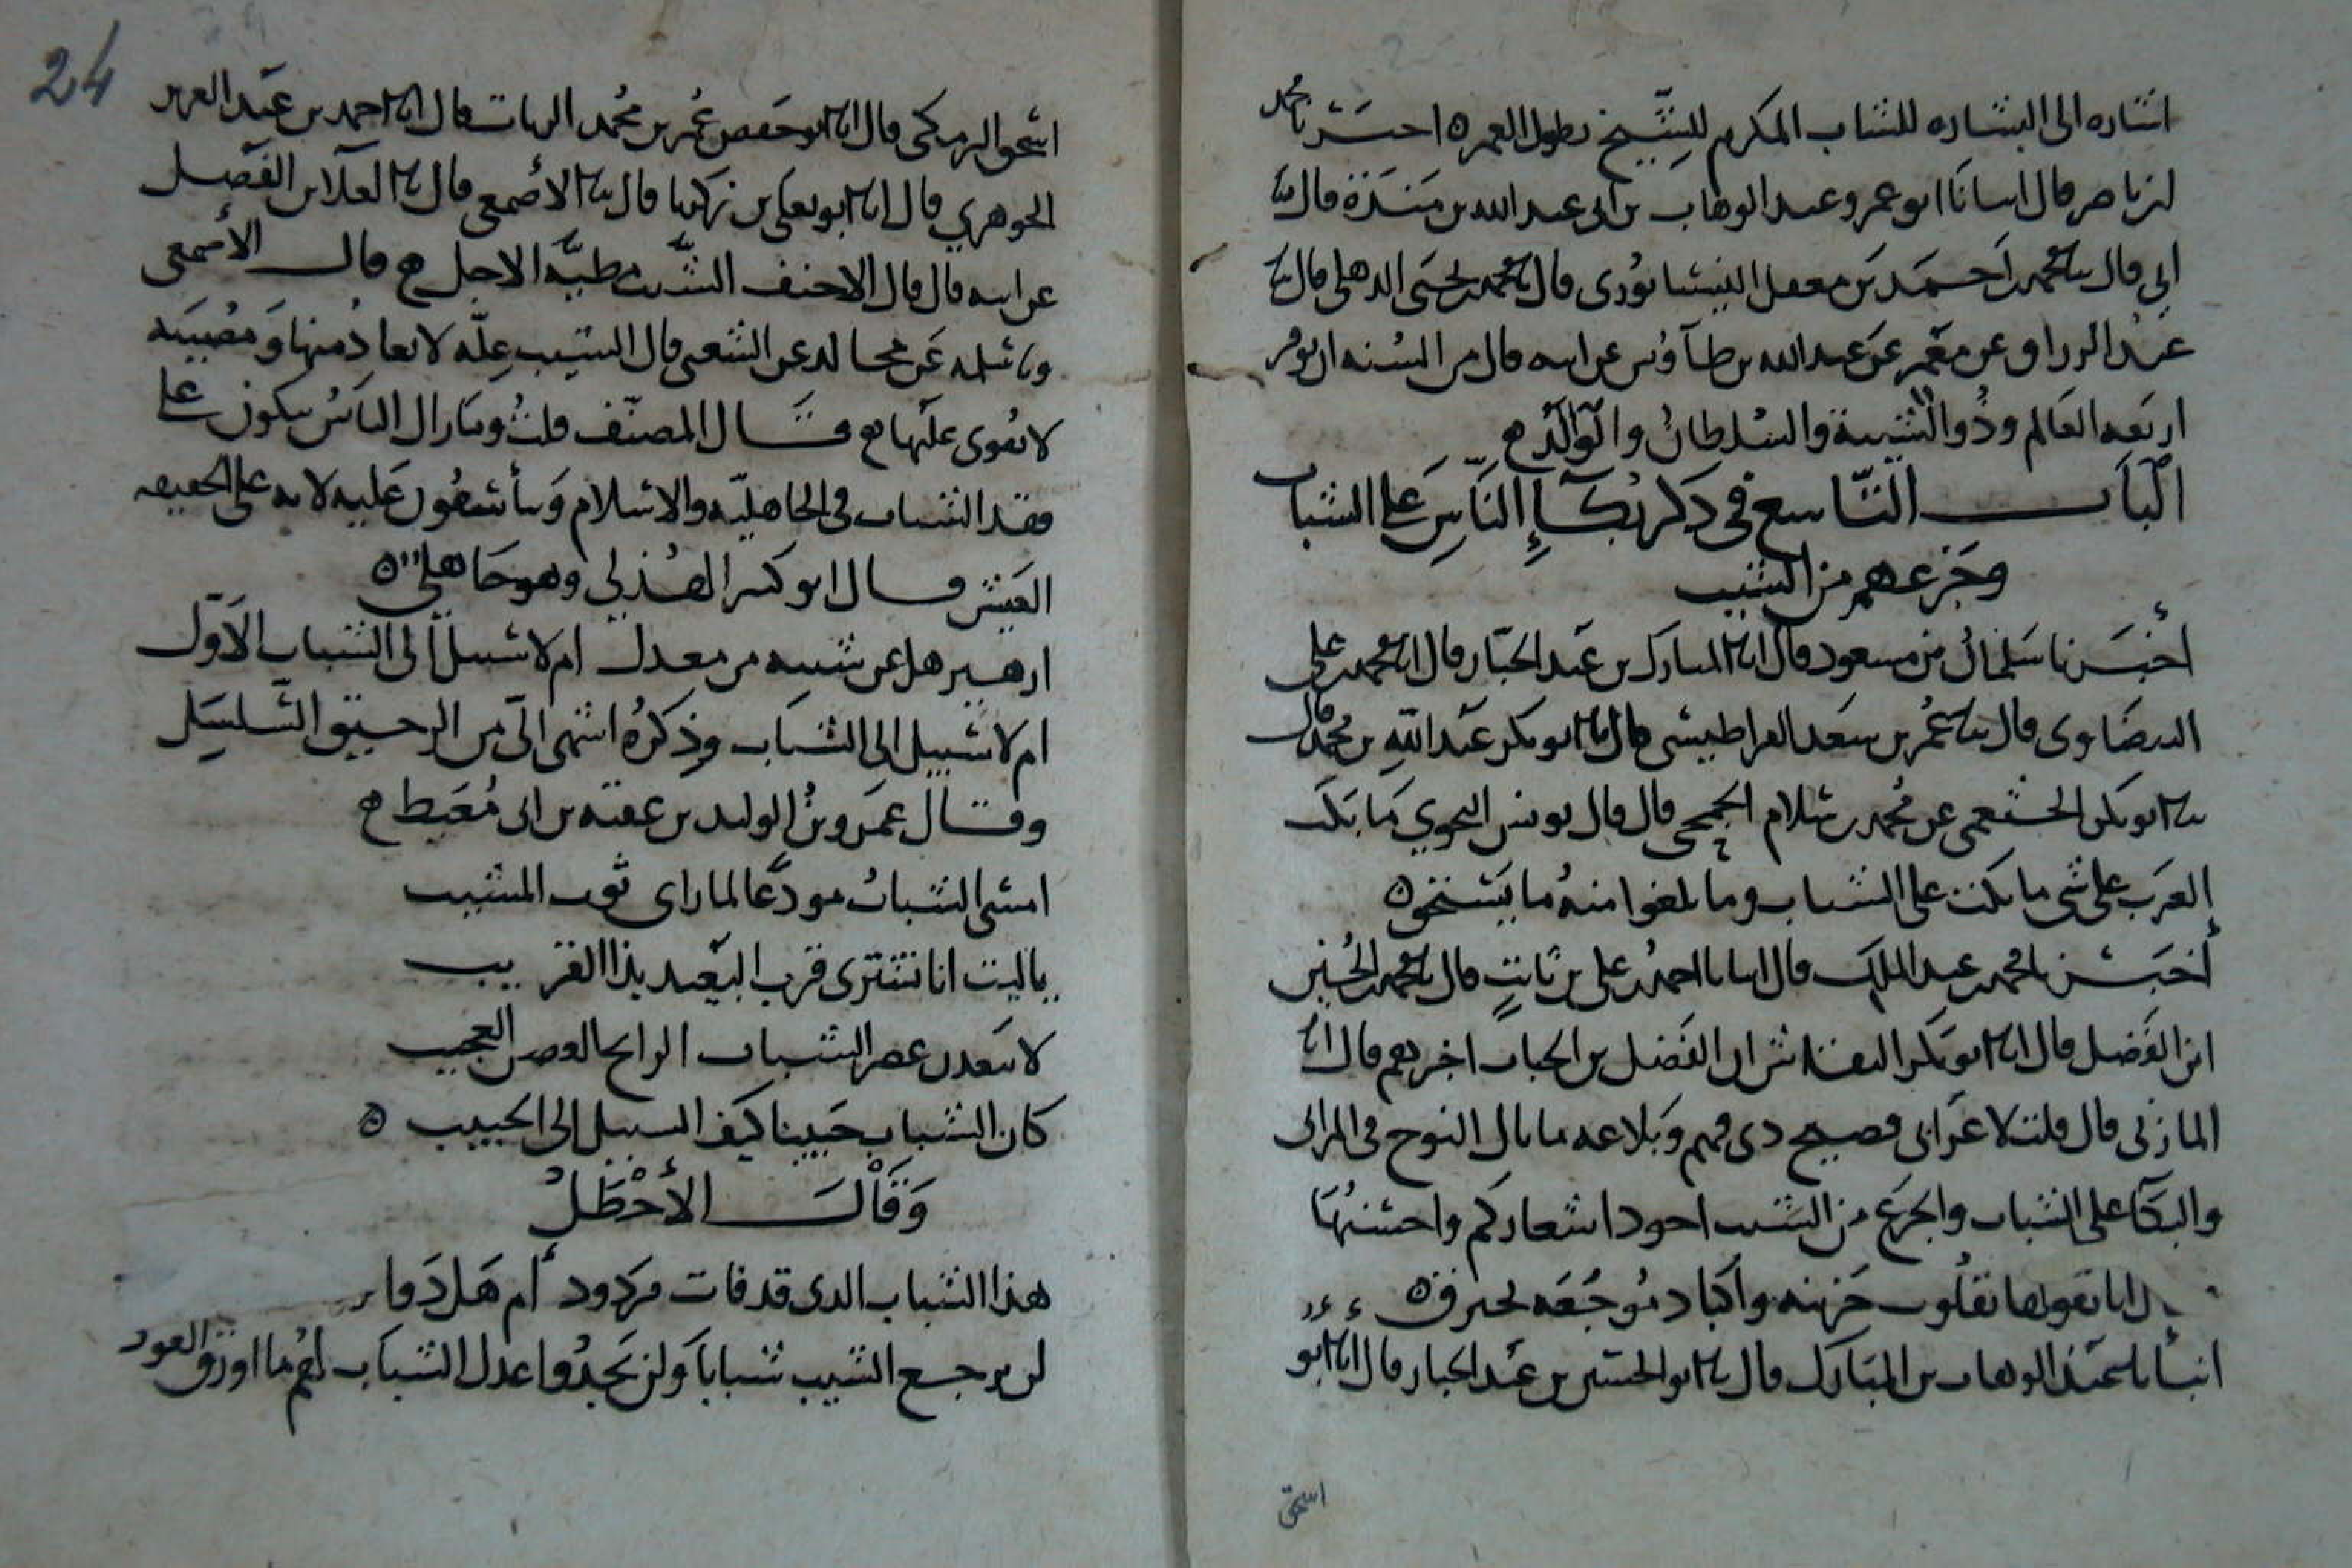 اشاره الى البشاره للشاب المكرم للشيخ بطول العمر ه اخبرنا محمد
بن ناصر قال انبانا ابو عمرو عبد الوهاب بن ابى عبد الله بن منده قال نا
ابي قال نا محمد بن احمد بن معقل النيسابورى قال نا محمد بن يحيى الدهلى قال نا
عبد الرزاق عن معمر عن عبد الله بن طاؤس عن ابيه قال من السنه ان يوقر
اربعه العالم وذو الشيبة والسلطان والوالد
الباب التاسع في ذكر بكاء الناس على الشباب
وجزعهم من الشيب
أخبرنا سلمان بن مسعود قال انا المبارك بن عبد الجبار قال انا محمد بن على
البيضاوى قال نا عمر بن سعد القراطيسى قال نا ابو بكر عبد الله بن محمد قال
نا ابو بكر الخثعمى عن محمد بن سلام الجمحى قال قال يونس النحوي ما بكت
العرب على شى ما بكت على الشباب وما بلغوا منه ما يستحق ه
أخبرنا محمد بن عبد الملك قال انبانا احمد بن على بن ثابت قال نا محمد بن الحسين
ابن الفضل قال انا ابو بكر النقاش ان الفضل بن الحباب اخبرهم قال انا
المازنى قال قلت لاعرابى فصيح ذى فهم وبلاغه ما بال النوح فى المراثى
والبكآ على الشباب والجزع من الشيب اجود اشعاركم واحسنها
قال انا نقولها بقلوب حزينه واكباد موجعه تحترق ه
انبأنا عبد الوهاب بن المبارك قال نا ابو الحسين بن عبد الجبار قال انا ابو
اسحق
24
اسحق البرمكى قال انا ابو حفص عمر بن محمد الزيات قال انا احمد بن عبد العزيز
الجوهري قال انا ابو يعلى بن زكريا قال نا الأصمعى قال نا العلآ بن الفضل
عن ابيه قال قال الاحنف الشيب مطيه الاجل قال الأصمعى
عن مجالد عن الشعبى قال الشيب علة لا يعاد منها ومصيبه
لا يعزى عليها قال المصنف قلت وما زال الناس يبكون على
فقد الشباب فى الجاهليه والاسلام ويتأسفون عليه لانه على الحقيقه
العيش قال ابو كبير الهذلي وهو جاهلي ه
ازهير هل عن شيبه من معدل ام لا سبيل الى الشباب الأول
ام لا سبيل الى الشباب وذكره اشهى الى من الرحيق السلسل
وقال عمرو بن الوليد بن عقبه بن ابى معيط
امسى الشباب مودعا لما راى ثوب المشيب
ياليت انا نشترى قرب البعيد بذا القريب
لا يبعدن عصر الشباب الرايح الغصن العجيب
كان الشباب حبيبنا كيف السبيل الى الحبيب ه
وقال الأخطل
هذا الشباب الذى قد فات مردود أم هل دواء
لن يرجع الشيب شبابا ولن يجدوا عدل الشباب لهم ما اورق العود